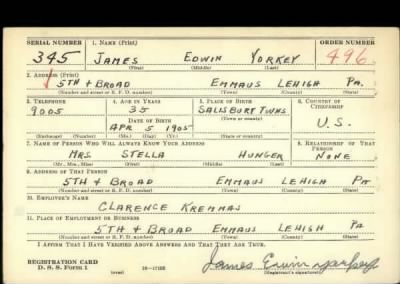 SERIAL NUMBER 1. NAME (Print) ORDER NUMBER
345 JAMES EDWIN YORKEY 496
(First) (Middle) (Last)
2. ADDRESS (Print)
5TH + BROAD EMMAUS LEHIGH PA.
(Number and street or R. F. D. number) (Town) (County) (State)
3. TELEPHONE 4. AGE IN YEARS 5. PLACE OF BIRTH 6. COUNTRY OF CITIZENSHIP
9005 35 SALISBURY TWNS
DATE OF BIRTH (Town or county)
APR 5 1905 U.S.
(Exchange) (Number) (Mo.) (Day) (Yr.) (State or country)
7. NAME OF PERSON WHO WILL ALWAYS KNOW YOUR ADDRESS 8. RELATIONSHIP OF THAT PERSON
MRS. STELLA HUNGER NONE
(Mr., Mrs., Miss) (First) (Middle) (Last)
9. ADDRESS OF THAT PERSON
5TH + BROAD EMMAUS LEHIGH PA
(Number and street or R. F. D. number) (Town) (County) (State)
10. EMPLOYER'S NAME
CLARENCE KREMMAS
11. PLACE OF EMPLOYMENT OR BUSINESS
5TH + BROAD EMMAUS LEHIGH PA
(Number and street or R. F. D. number) (Town) (County) (State)
I AFFIRM THAT I HAVE VERIFIED ABOVE ANSWERS AND THAT THEY ARE TRUE.
REGISTRATION CARD
D. S. S. Form 1 (over) James Edwin Yorkey
(Registrant's signature)